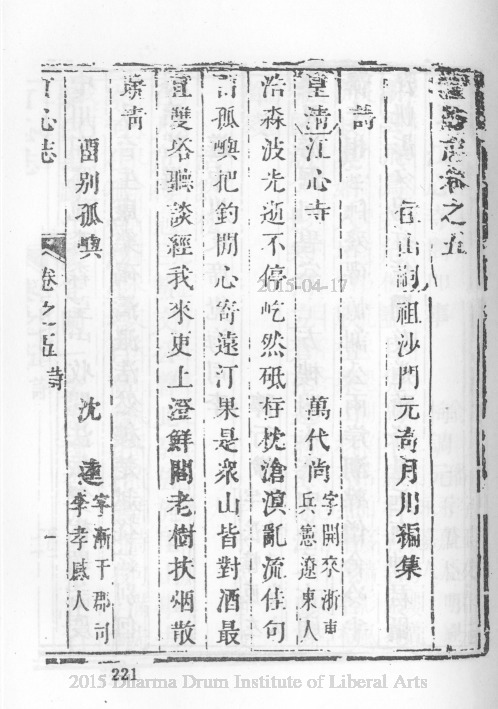 卷之五
住山嗣祖沙門元奇月川編集
詩
江心寺 萬代尚 字開來浙東
兵憲遼東人
浩淼波光逝不停屹然砥柱枕滄溟亂流佳句
孤嶼把釣閒心寄遠汀果是衆山皆對酒最
宜雙塔聽談經我來更上澄鮮閣老樹扶烟散
青
留别孤嶼 沈 字漸于郡司
李孝感人
心志 卷之五 詩 一
2015-04-17
221
2015 Dharma Drum Institute of Liberal Arts